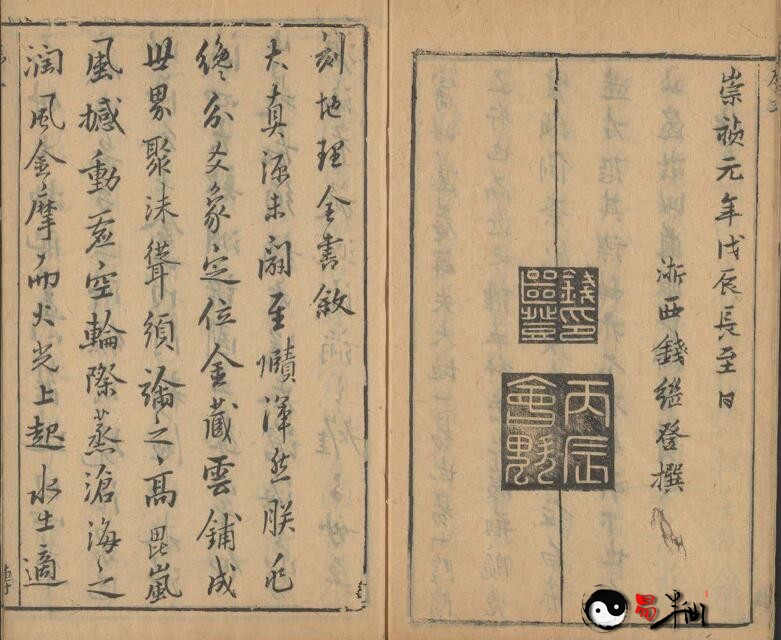 崇禎元年戊辰長至日
浙西錢繼登撰
錢印繼登
丙辰會魁
刻地理全書敘
大真源未闢至賾渾然朕兆
纔分爻象定位金藏雲鋪成
世界聚沫聳須彌之高毘嵐
風撼動虛空輪際蒸滄海之
潤風金摩而火光上起水生適
易半仙